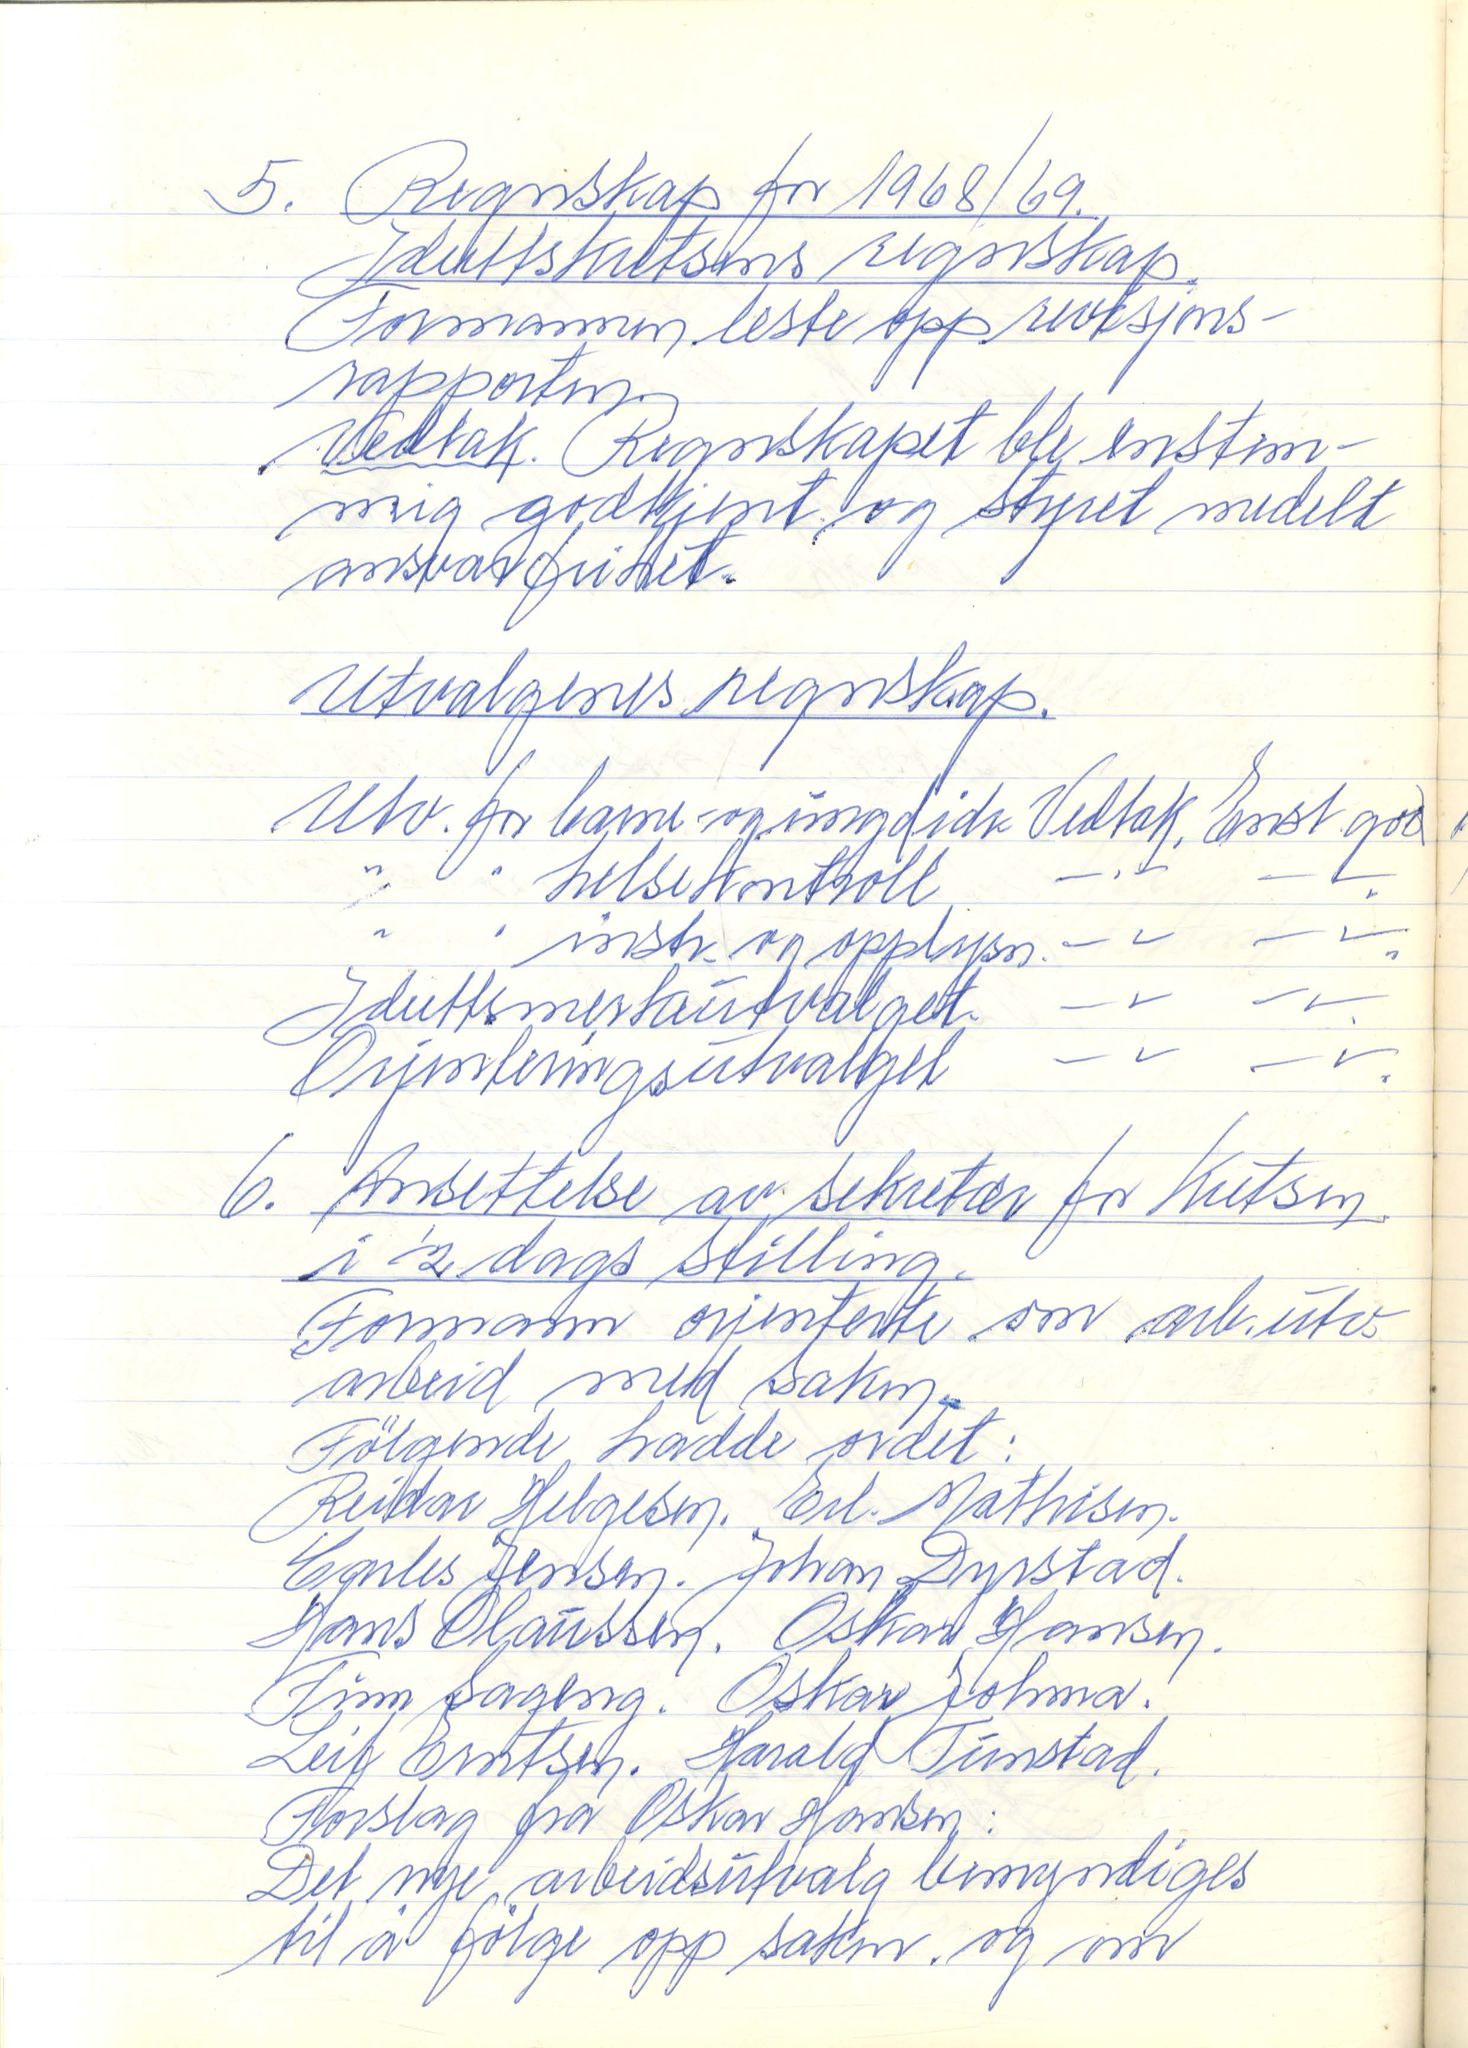 5. Regnskap for 1968/69.
Idrettskretsens regnskap.
Formannen leste opp revisjons-
rapporten
Vedtak. Regnskapet ble enstem-
mig godkjent og styret meddelt
ansvarfrihet.
Utvalgenes regnskap.
Utv. for barne- og ungd idr. Vedtak. Enst. god
" " helsekontroll -"- -"-
" " instr. og opplysn. -"- -"-
Idrettsmerkeutvalget. -"- -"-
Orienteringsutvalget -"- -"-
6. Ansettelse av sekretær for Kretsen
i 1/2 dags stilling.
Formann orienterte om arb.utv.
arbeid med saken.
Følgende hadde ordet:
Reidar Helgesen. Erl. Mathisen.
Jensen. Johan Dyrstad.
Hans Olaussen. Oskar Hansen.
Finn Sageng. Oskar
Leif Erntsen. Harald Tunstad.
Forslag fra Oskar Hansen:
Det nye arbeidsutvalg bemyndiges
til å følge opp saken og om